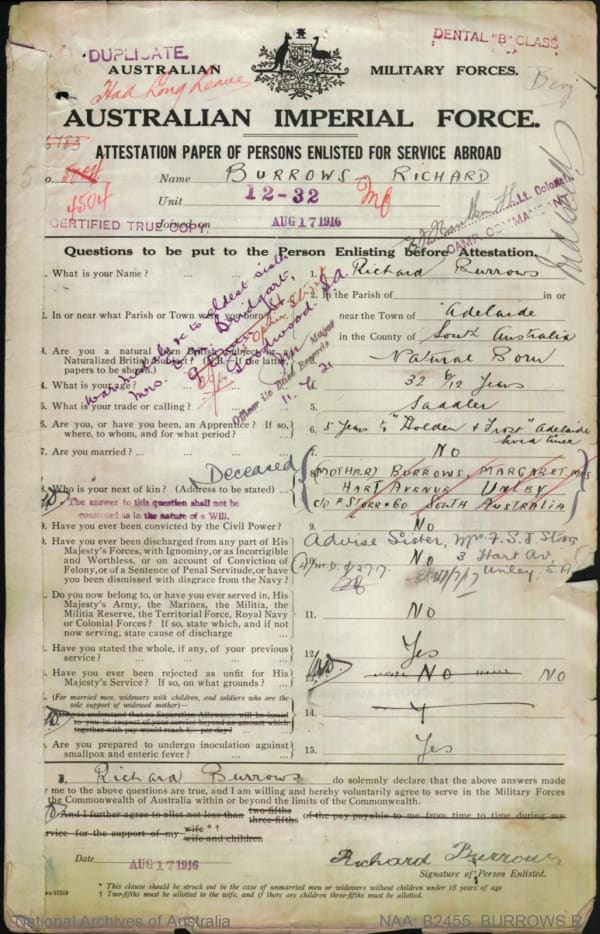 DUPLICATE
DENTAL "B" CLASS
AUSTRALIAN MILITARY FORCES.
Had Long Leave
AUSTRALIAN IMPERIAL FORCE.
5183
ATTESTATION PAPER OF PERSONS ENLISTED FOR SERVICE ABROAD
o. Name BURROWS - RICHARD
4504
Unit 12-32
CERTIFIED TRUE COPY.
Joined on AUG 17 1916
Lt. Colonel
CAMP COMMANDANT
Questions to be put to the Person Enlisting before Attestation.
. What is your Name? ... 1. Richard Burrows
2. In the Parish of in or
2. In or near what Parish or Town were you born? near the Town of Adelaide
in the County of South Australia
3. Are you a natural born British Subject or a Naturalized British Subject? (N.B.—If the latter, papers to be shown.) Natural Born
4. What is your age? ... 32 6/12 Years
5. What is your trade or calling? ... 5. Saddler
6. Are you, or have you been, an Apprentice? If so, where, to whom, and for what period? 6. 5 Years to "Holden & Frost" Adelaide
7. Are you married? ... 7. No
Deceased
8. Who is your next of kin? (Address to be stated) ... (MOTHER) BURROWS, MARGARET MRS
HART AVENUE UNLEY
C/O F STORR & CO SOUTH AUSTRALIA
The answer to this question shall not be
construed as in the nature of a Will.
9. Have you ever been convicted by the Civil Power? 9. No
Advise Sister, Mrs. F. S. J. Storr
3 Hart Av.
Unley S.A.
. Have you ever been discharged from any part of His
Majesty's Forces, with Ignominy, or as Incorrigible
and Worthless, or on account of Conviction of
Felony, or of a Sentence of Penal Servitude, or have
you been dismissed with disgrace from the Navy? No
. Do you now belong to, or have you ever served in, His
Majesty's Army, the Marines, the Militia, the
Militia Reserve, the Territorial Force, Royal Navy
or Colonial Forces? If so, state which, and if not
now serving, state cause of discharge ... 11. No
. Have you stated the whole, if any, of your previous
service? ... 12. Yes
. Have you ever been rejected as unfit for His
Majesty's Service? If so, on what grounds? 13. No NO
(For married men, widowers with children, and soldiers who are the
sole support of widowed mother)—
Do you understand that no Separation Allowance will be issued
to you in respect of your service beyond an amount which
together with pay would reach per day? 14.
. Are you prepared to undergo inoculation against
smallpox and enteric fever? ... 15. Yes
War to eldest sister
Mrs. Bridgart,
Goodwood. SA
Major
Officer i/c Base Records
11.6.21
Richard Burrows do solemnly declare that the above answers made
me to the above questions are true, and I am willing and hereby voluntarily agree to serve in the Military Forces
the Commonwealth of Australia within or beyond the limits of the Commonwealth.
And I further agree to allot not less than two-fifths three-fifths of the pay payable to me from time to time during my
service for the support of my wife wife and children
Date AUG 17 1916 Richard Burrows
Signature of Person Enlisted.
* This clause should be struck out in the case of unmarried men or widowers without children under 18 years of age
† Two-fifths must be allotted to the wife, and if there are children three-fifths must be allotted.
National Archives of Australia NAA: B2455, BURROWS R